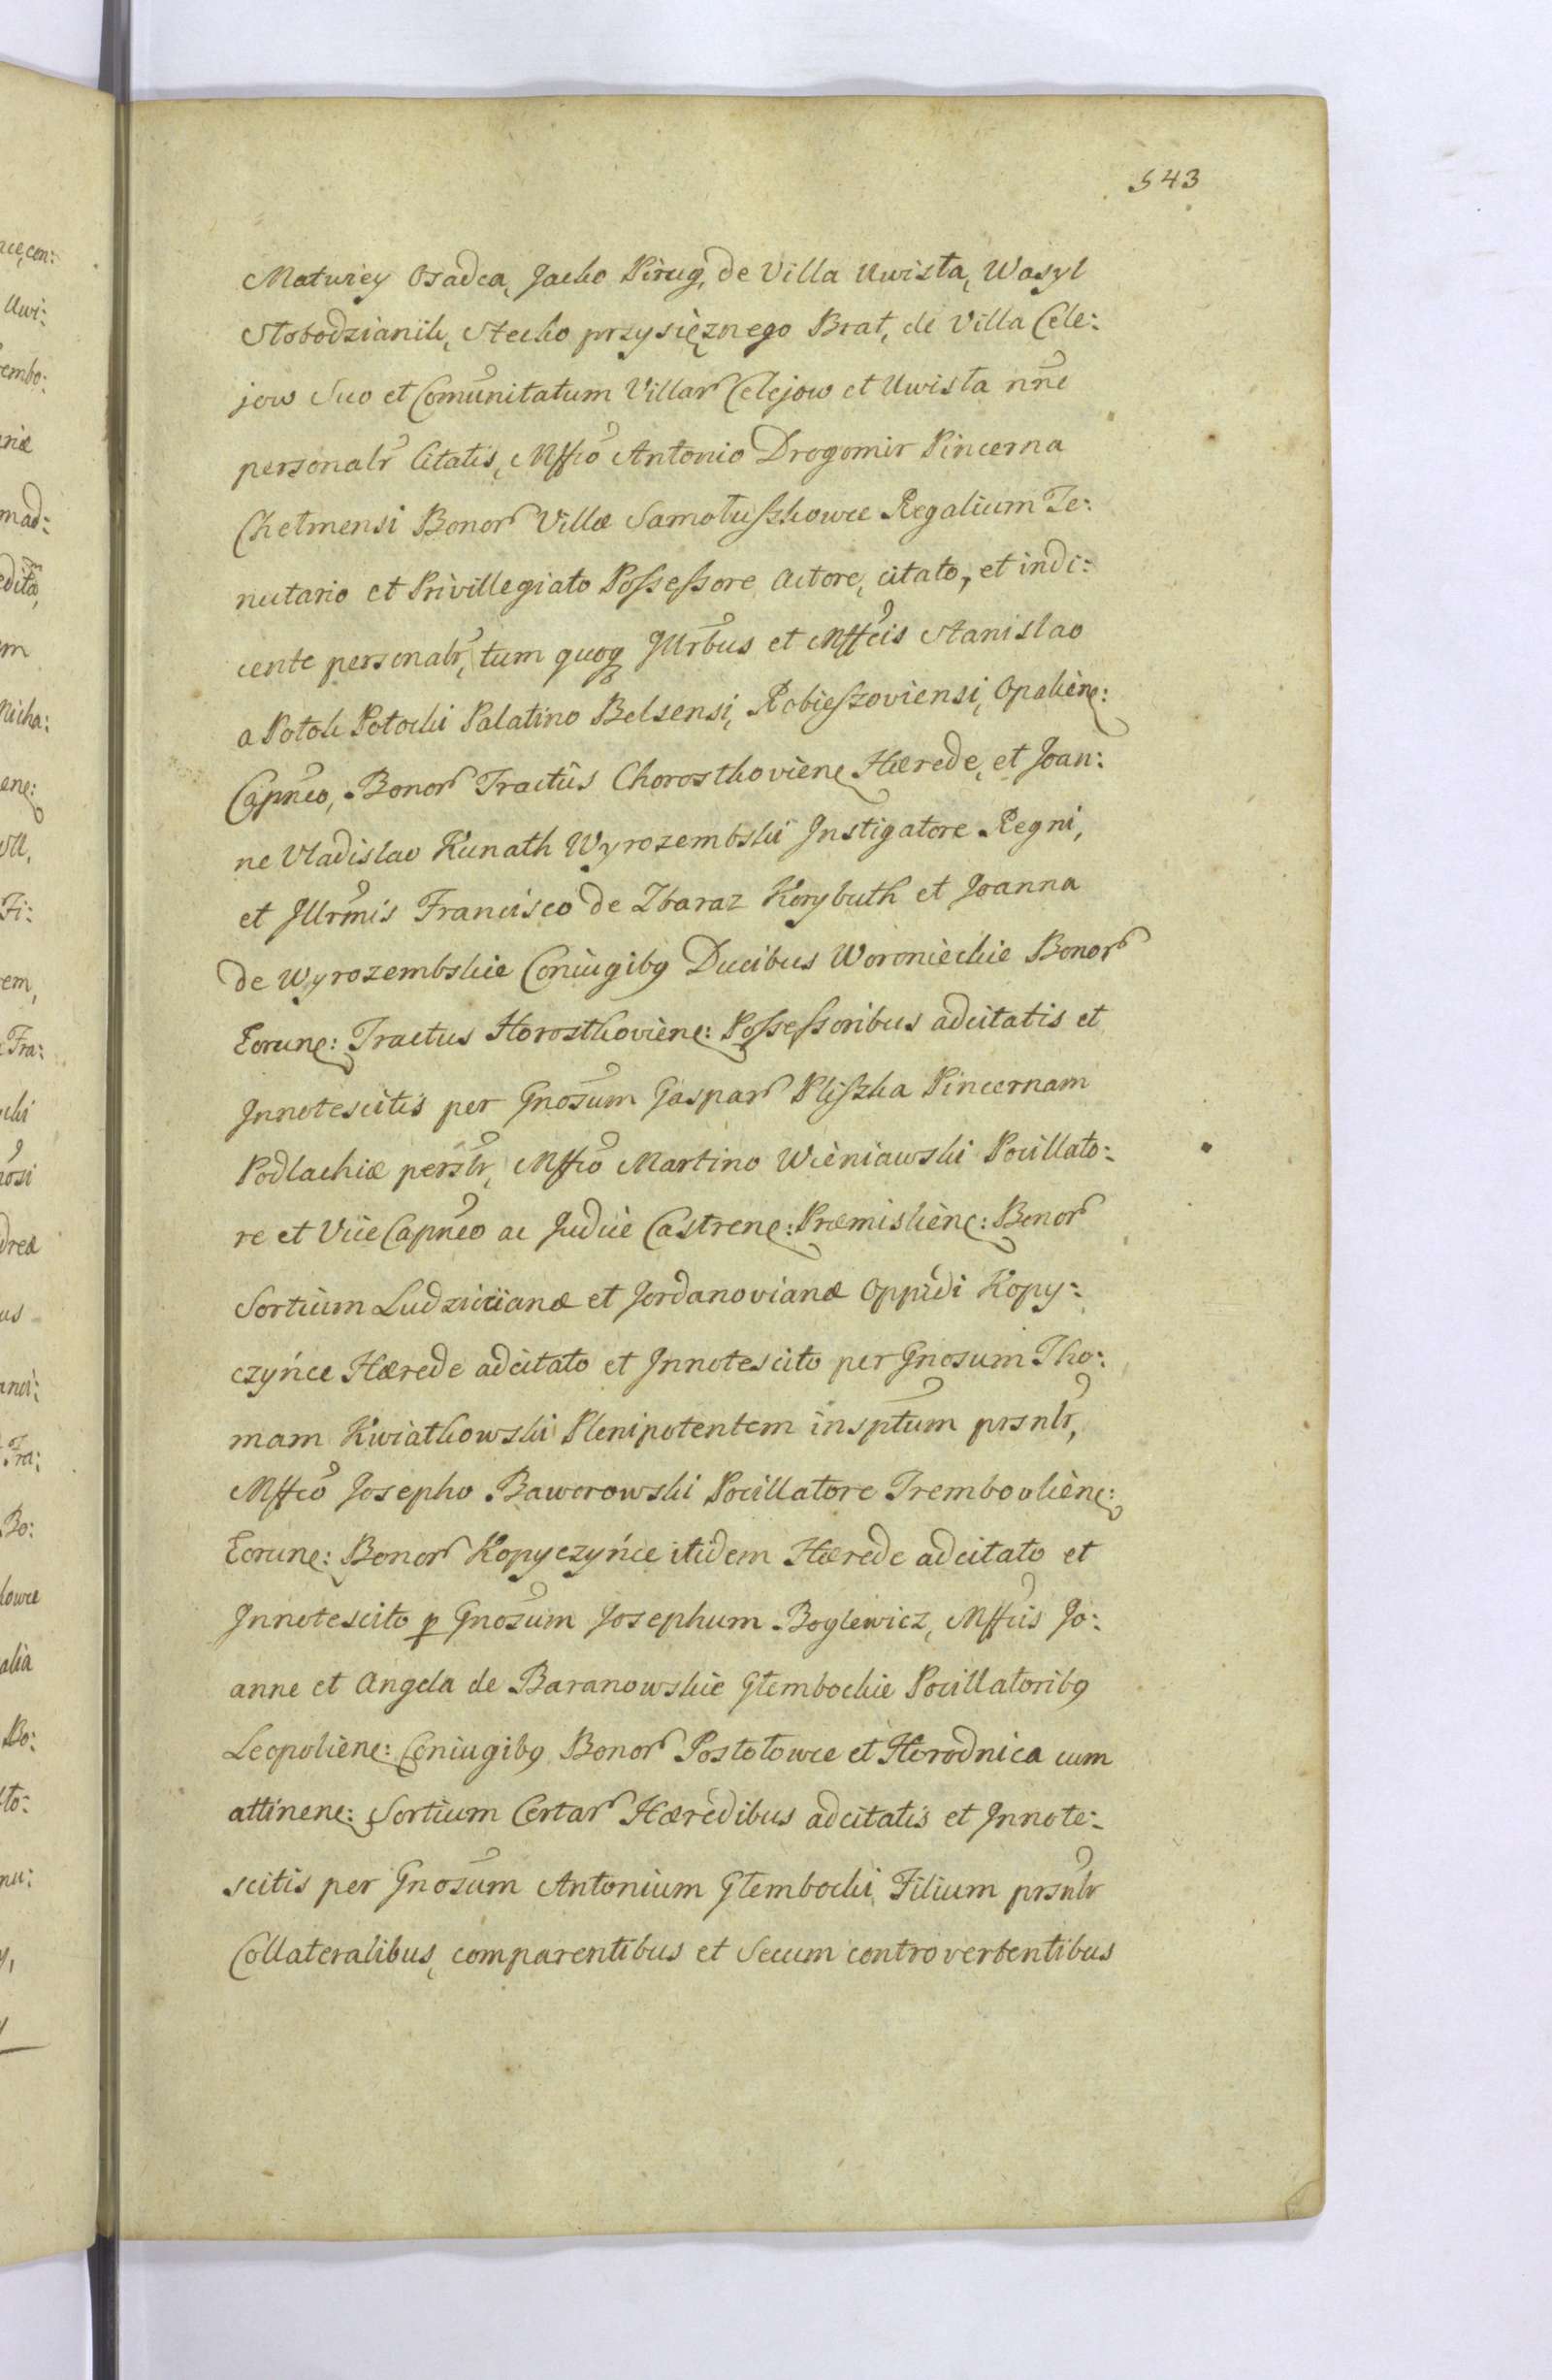 543
Matwiey Osadca, Jacko Pirug, de Villa Uwisła, Wasyl
Słobodzianik, Stecko przysięznego Brat, de Villa Cele:
jow Suo et Comunitatum Villar Celejow et Uwisła nne
personalr Citatis, Mffco Antonio Drogomir Pincerna
Chełmensi Bonor Villæ Samołuszkowce Regalium Te:
nutario et Privillegiato Possessore Actore, citato, et indi:
cente personalr, tum quoq Jllrbus et Mffcis Stanislao
a Potok Potocki Palatino Belsensi, Robieszoviensi, Opaliene:
Capneo, Bonor Tractûs Chorostkoviene Hærede, et Joan:
ne Vladislao Kunath Wyrozembski Jnstigatore Regni,
et Jllrmis Francisco de Zbaraz Korybuth et Joanna
de Wyrozembskie Coniugibq Ducibus Woronieckie Bonor
Eorune: Tractus Horostkoviene: Possessoribus adcitatis et
Jnnotescitis per Gnosum Gaspar Pliszka Pincernam
Podlachiæ perslr, Mffco Martino Wieniawski Pocillato:
re et Vice Capneo ac Judice Castrene: Præmisliene: Bonor
Sortium Ludziciianæ et Jordanovianæ Oppidi Kopy:
czyńce Hærede adcitato et Jnnotescito per Gnosum Tho:
mam Kwiatkowski Plenipotentem insptum prsnlr,
Mffco Josepho Baworowski Pocillatore Trembovliene:
Eorune: Bonor Kopyczyńce itidem Hærede adcitato et
Jnnotescito p Gnosum Josephum Boglewicz, Mffcis Jo:
anne et Angela de Baranowskie Głembockie Pocillatoribq
Leopoliene: Coniugibq Bonor Postołowce et Horodnica cum
attinene: Sortium Certar Hæredibus adcitatis et Jnnote:
scitis per Gnosum Antonium Głembocki Filium prsnlr
Collateralibus, comparentibus et Secum controvertentibus